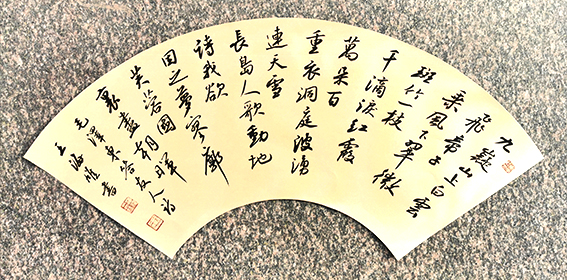 九嶷山上白雲
飛帝子
乘風下翠微
斑竹一枝
千滴淚紅霞
萬朵百
重衣洞庭波湧
連天雪
長島人歌動地
詩我欲
因之夢寥廓
芙蓉國
裏盡朝暉
毛澤東答友人詩
王海書